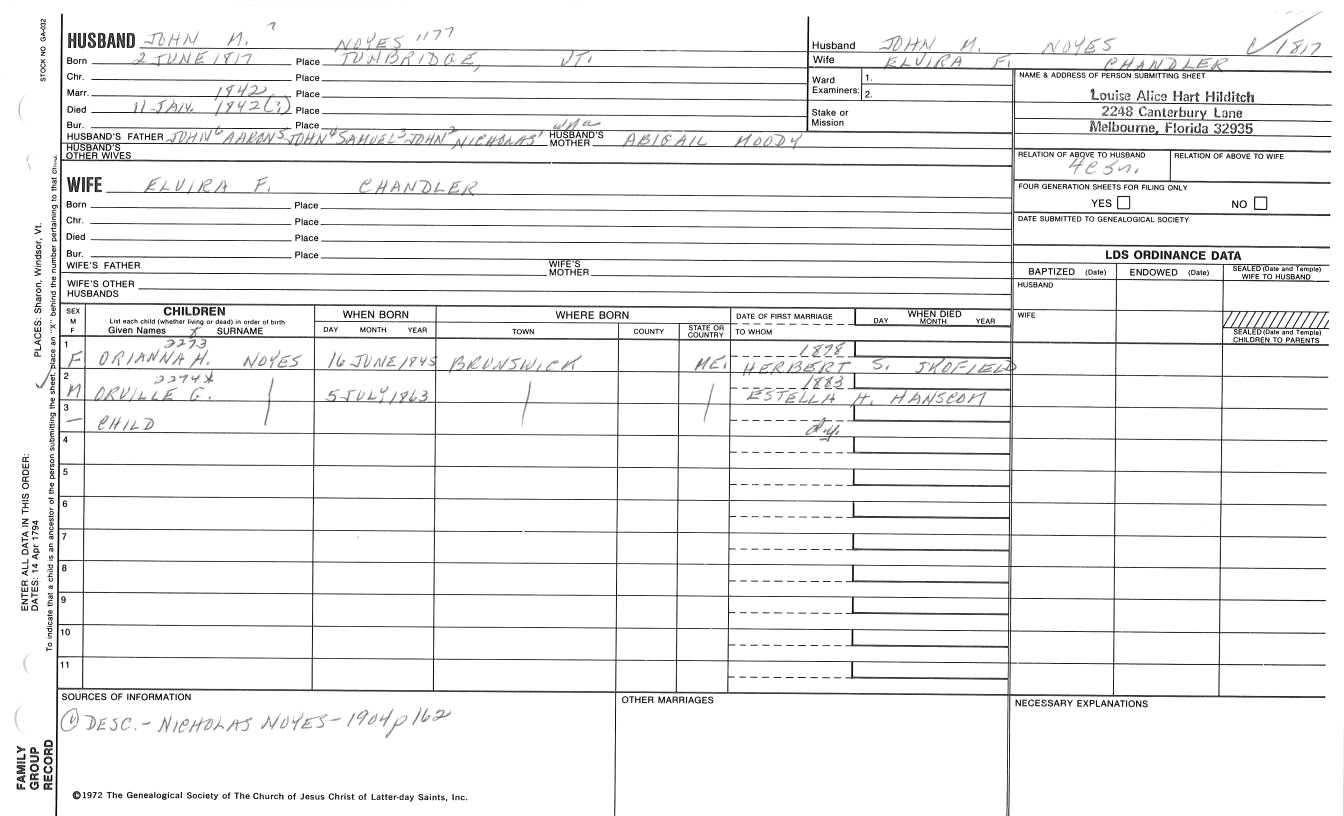 STOCK NO GA-032
HUSBAND JOHN M. 7 NOYES 1177
Born 2 JUNE 1817 Place TUNBRIDGE, VT.
Chr. Place
Marr. 1842 Place
Died 11 JAN. 1842(?) Place
Bur. Place
HUSBAND'S FATHER JOHN 6 AARON 5 JOHN 4 SAMUEL 3 JOHN 2 NICHOLAS 1 HUSBAND'S MOTHER ABIGAIL MOODY
HUSBAND'S OTHER WIVES
Husband JOHN M. NOYES 1817
Wife ELVIRA F. CHANDLER
Ward Examiners: 1.
2.
Stake or Mission
NAME & ADDRESS OF PERSON SUBMITTING SHEET
Louise Alice Hart Hilditch
2248 Canterbury Lane
Melbourne, Florida 32935
RELATION OF ABOVE TO HUSBAND RELATION OF ABOVE TO WIFE
FOUR GENERATION SHEETS FOR FILING ONLY
YES NO
DATE SUBMITTED TO GENEALOGICAL SOCIETY
WIFE ELVIRA F. CHANDLER
Born Place
Chr. Place
Died Place
Bur. Place
WIFE'S FATHER WIFE'S MOTHER
WIFE'S OTHER HUSBANDS
LDS ORDINANCE DATA
BAPTIZED (Date) ENDOWED (Date) SEALED (Date and Temple) WIFE TO HUSBAND
HUSBAND
WIFE
SEALED (Date and Temple) CHILDREN TO PARENTS
SEX M F
CHILDREN
List each child (whether living or dead) in order of birth
Given Names SURNAME
WHEN BORN
DAY MONTH YEAR
WHERE BORN
TOWN COUNTY STATE OR COUNTRY
DATE OF FIRST MARRIAGE
TO WHOM
WHEN DIED
DAY MONTH YEAR
1 2273 1878
F ORIANNA H. NOYES 16 JUNE 1845 BRUNSWICK ME. HERBERT S. SKOFIELD
2 2274x 1883
M ORVILLE G. 5 JULY 1863 ESTELLA H. HANSCOM
3
— CHILD d.y.
4
5
6
7
8
9
10
11
SOURCES OF INFORMATION
① DESC.- NICHOLAS NOYES-1904 p 162
OTHER MARRIAGES
NECESSARY EXPLANATIONS
©1972 The Genealogical Society of The Church of Jesus Christ of Latter-day Saints, Inc.
FAMILY GROUP RECORD
ENTER ALL DATA IN THIS ORDER:
DATES: 14 Apr 1794
PLACES: Sharon, Windsor, Vt.
To indicate that a child is an ancestor of the person submitting the sheet, place an "X" behind the number pertaining to that child.